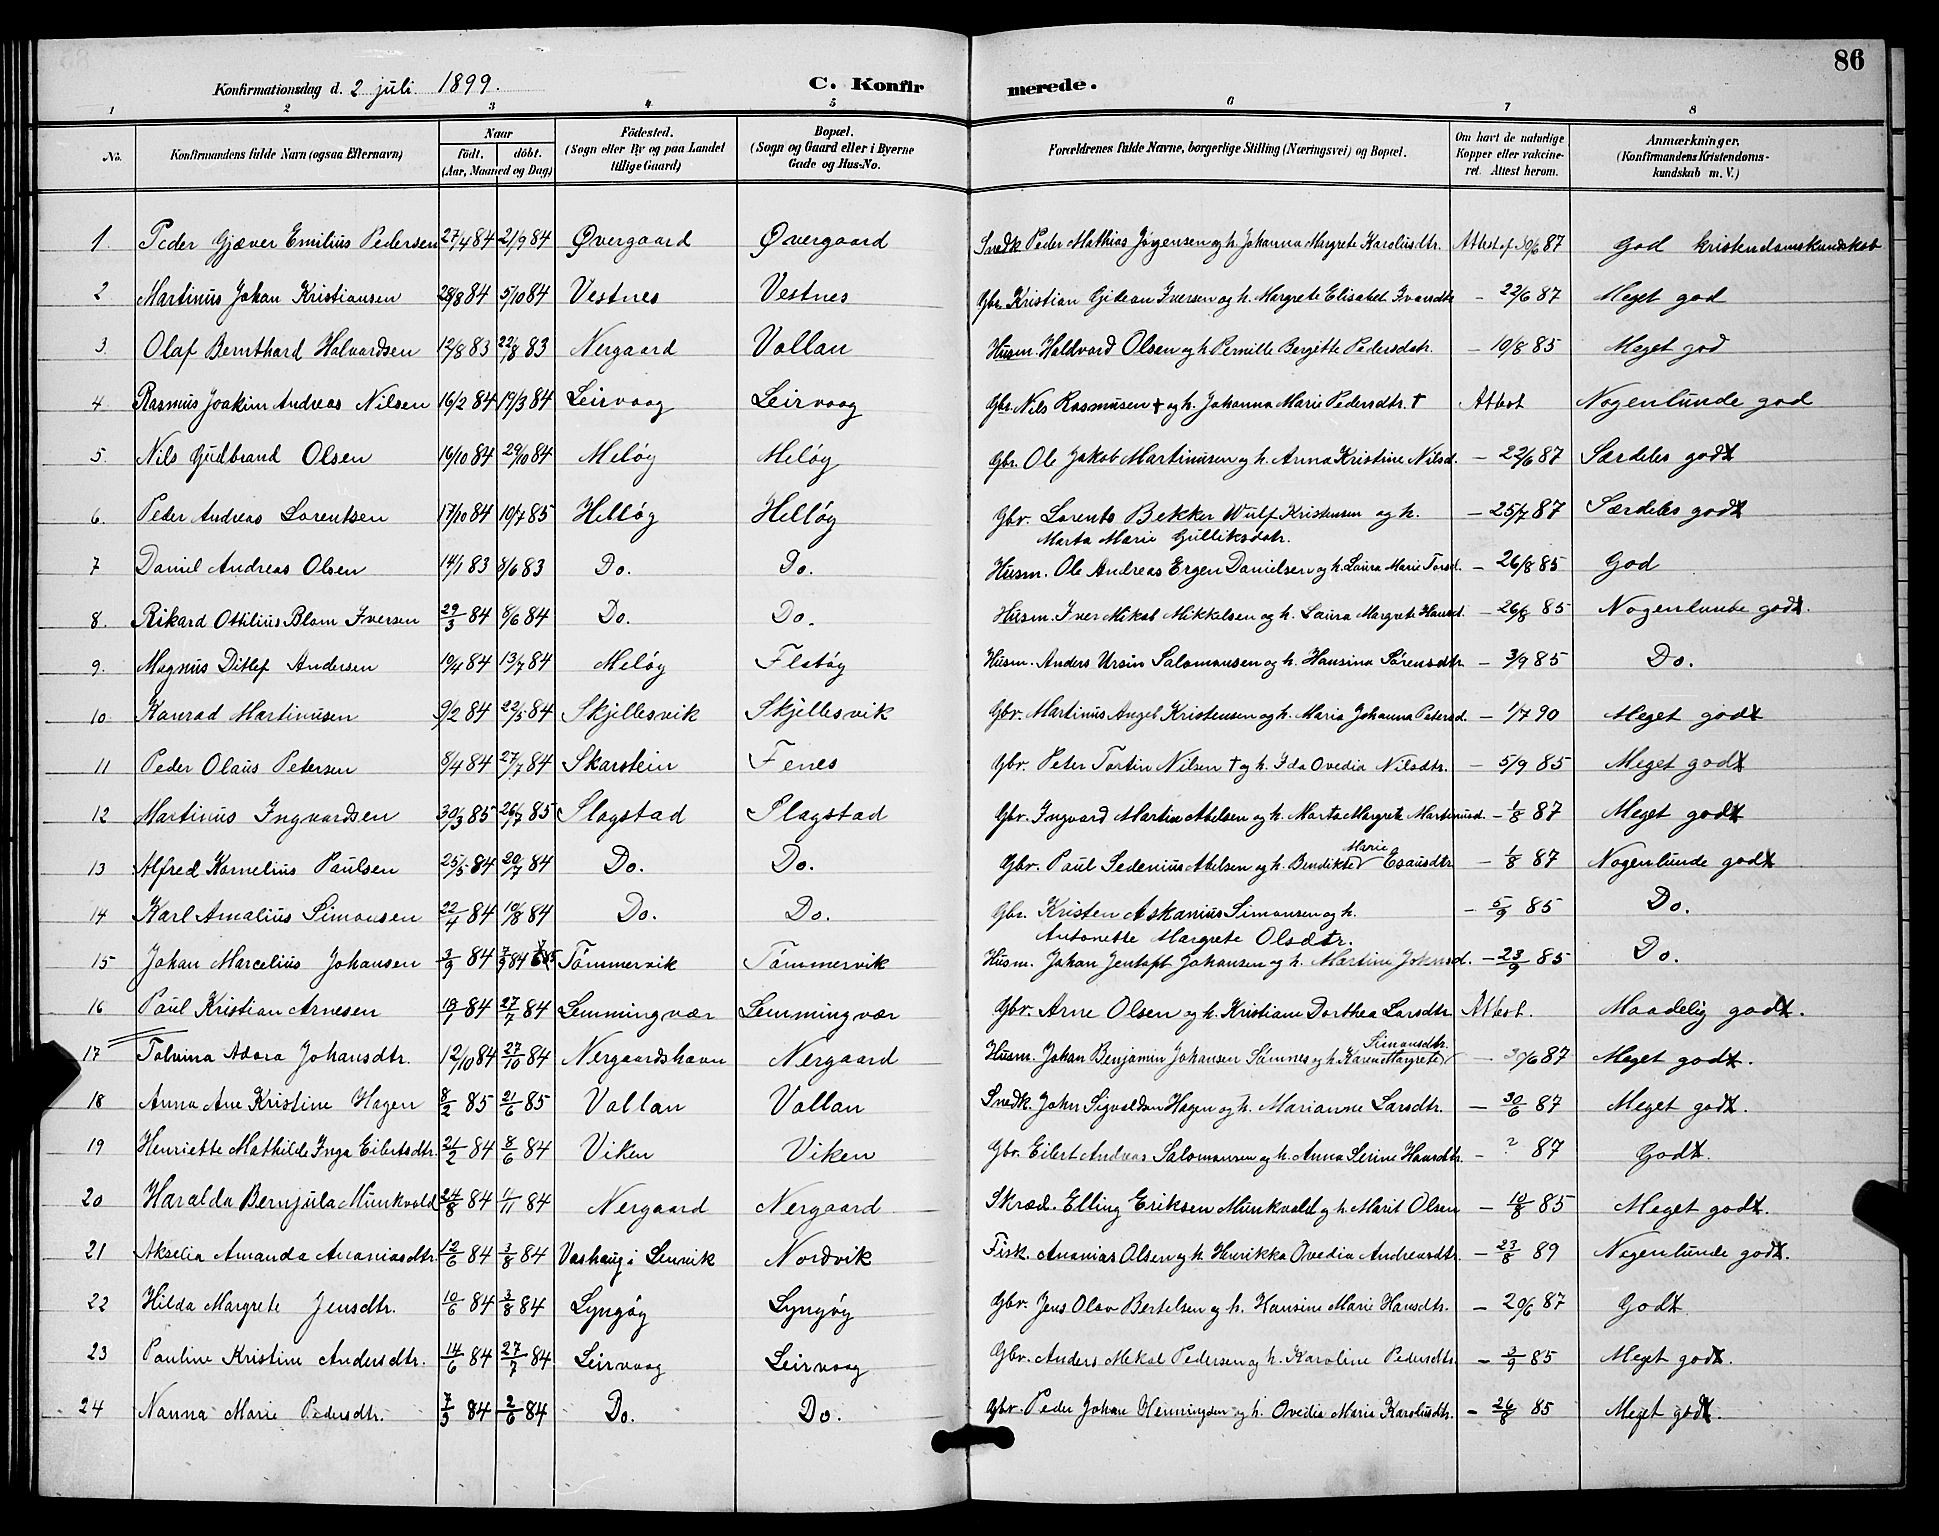 86
Konfirmationsdag d. 2 juli 1899.
C. Konfirmerede.
1 2 3 4 5 6 7 8
No. Konfirmandens fulde Navn (ogsaa Efternavn) Naar födt. döbt. (Aar, Maaned og Dag) Födested. (Sogn eller By og paa Landet tillige Gaard) Bopæl. (Sogn og Gaard eller i Byerne Gade og Hus-No. Forældrenes fulde Navne, borgerlige Stilling (Næringsvei) og Bopæl. Om havt de naturlige Kopper eller vakcineret. Attest herom. Anmærkninger. (Konfirmandens Kristendomskundskab m. V.)
1. Peder Gjæver Emilius Pedersen 27/4 84 21/9 84 Øvergaard Øvergaard Snedk. Peder Mathias Jørgensen og h. Johanna Margrete Karolusdtr. Attest af 30/6 87 God kristendomskundskab
2 Martinus Johan Kristiansen 28/8 84 5/10 84 Vestnes Vestnes Gbr. Kristian Gideon Iversen og h. Margrete Elisabet Iversdtr - 22/6 87 Meget god
3. Olaf Bernthard Halvardsen 12/8 83 22/8 83 Nergaard Vollan Husm. Haldvard Olsen og h. Pernille Bergitte Pedersdatr. - 10/8 85 Meget god
4 Rasmus Joakim Andreas Nilsen 16/2 84 19/3 84 Leirvaag Leirvaag Gbr. Nils Rasmusen † og h. Johanna Marie Pedersdtr. † Attest Nogenlunde god
5. Nils Gudbrand Olsen 16/10 84 29/10 84 Meløy Meløy Gbr. Ole Jakob Martinusen og h. Anna Kristine Nilsd. - 22/6 87 Særdeles godt
6. Peder Andreas Lorentsen 17/10 84 10/7 85 Helløy Helløy Gbr. Lorents Bekker Wulf Kristensen og h. Marta Marie Gulliksdatr. - 25/7 87 Særdeles godt
7 Daniel Andreas Olsen 14/1 83 8/6 83 Do. Do. Husm. Ole Andreas Ergen Danielsen og h. Laura Marie Torsd. - 26/8 85 God
8. Rikard Ottilius Blom Iversen 29/3 84 8/6 84 Do. Do. Husm. Iver Mikal Mikkelsen og h. Laura Margrete Hansd. - 26/8 85 Nogenlunde godt.
9. Magnus Ditlef Andersen 19/4 84 13/7 84 Meløy Flatøy Husm. Anders Ursin Salomonsen og h. Hansina Sørensdtr. - 3/9 85 Do.
10 Konrad Martinusen 9/2 84 22/5 84 Skjellesvik Skjellesvik Gbr. Martinus Angel Kristensen og h. Maria Johanna Petersd. - 1/7 90 Meget godt
11 Peder Olaus Petersen 8/4 84 27/7 84 Skarstein Fenes Gbr. Peter Tortin Nilsen † og h. Ida Ovedia Nilsdtr. - 5/9 85 Meget godt
12 Martinus Ingvardsen 30/3 85 26/7 85 Slagstad Slagstad Gbr. Ingvard Martin Abelsen og h. Marta Margrete Martinusd. - 1/8 87 Meget godt
13 Alfred Kornelius Paulsen 25/5 84 20/7 84 Do. Do. Gbr. Paul Sedenius Abelsen og h. Bendikte Marie Esausdtr - 1/8 87 Nogenlunde godt
14 Karl Amalius Simonsen 22/4 84 10/8 84 Do. Do. Gbr. Kristen Askanius Simonsen og h. Antonette Margrete Olsdtr. - 5/9 85 Do.
15 Johan Marcelius Johansen 3/9 84 7/9 84 Tømmervik Tømmervik Husm. Johan Jentoft Johansen og h. Martine Johnsd. - 23/9 85 Do.
16 Paul Kristian Arnesen 18/1 84 27/7 84 Lemmingvær Lemmingvær Gbr. Arne Olsen og h. Kristiane Dorthea Larsdtr. Attest. Maadelig godt.
17 Tolvina Adora Johansdtr. 12/10 84 27/10 84 Nergaardshavn Nergaard Husm. Johan Benjamin Johansen Sømnes og h. Karen Margrete Simonsdtr. - 30/6 87 Meget godt.
18 Anna Ane Kristine Hagen 8/2 85 21/6 85 Vollan Vollan Snedk. John Sigvaldsen Hagen og h. Marianne Larsdtr. - 30/6 87 Meget godt.
19 Henriette Mathilde Inga Eilertsdtr. 21/2 84 8/6 84 Viken Viken Gbr. Eilert Andreas Salomonsen og h. Anna Serine Hansdtr. - ? 87 Godt.
20 Haralda Bernjula Munkvold 24/8 84 4/11 84 Nergaard Nergaard Skræd. Elling Eriksen Munkvold og h. Marit Olsen - 10/8 85 Meget godt.
21 Akselia Amanda Ananiasdtr. 12/6 84 3/8 84 Vashaug i Lenvik Nordvik Fisk. Ananias Olsen og h. Henrikka Ovedia Andreasdtr. - 23/8 89 Nogenlunde godt.
22 Hilda Margrete Jensdtr. 10/6 84 3/8 84 Lyngøy Lyngøy Gbr. Jens Olav Bertelsen og h. Hansine Marie Hansdtr. - 20/6 87 Godt
23 Pauline Kristine Andersdtr. 14/6 84 27/7 84 Leirvaag Leirvaag Gbr. Anders Mekal Pedersen og h. Karoline Pedersdtr. - 3/9 85 Meget godt.
24 Nanna Marie Pedersdtr. 7/3 84 2/6 84 Do. Do. Gbr. Peder Johan Henningsen og h. Ovedia Maria Karolusdtr. - 26/8 85 Meget godt.